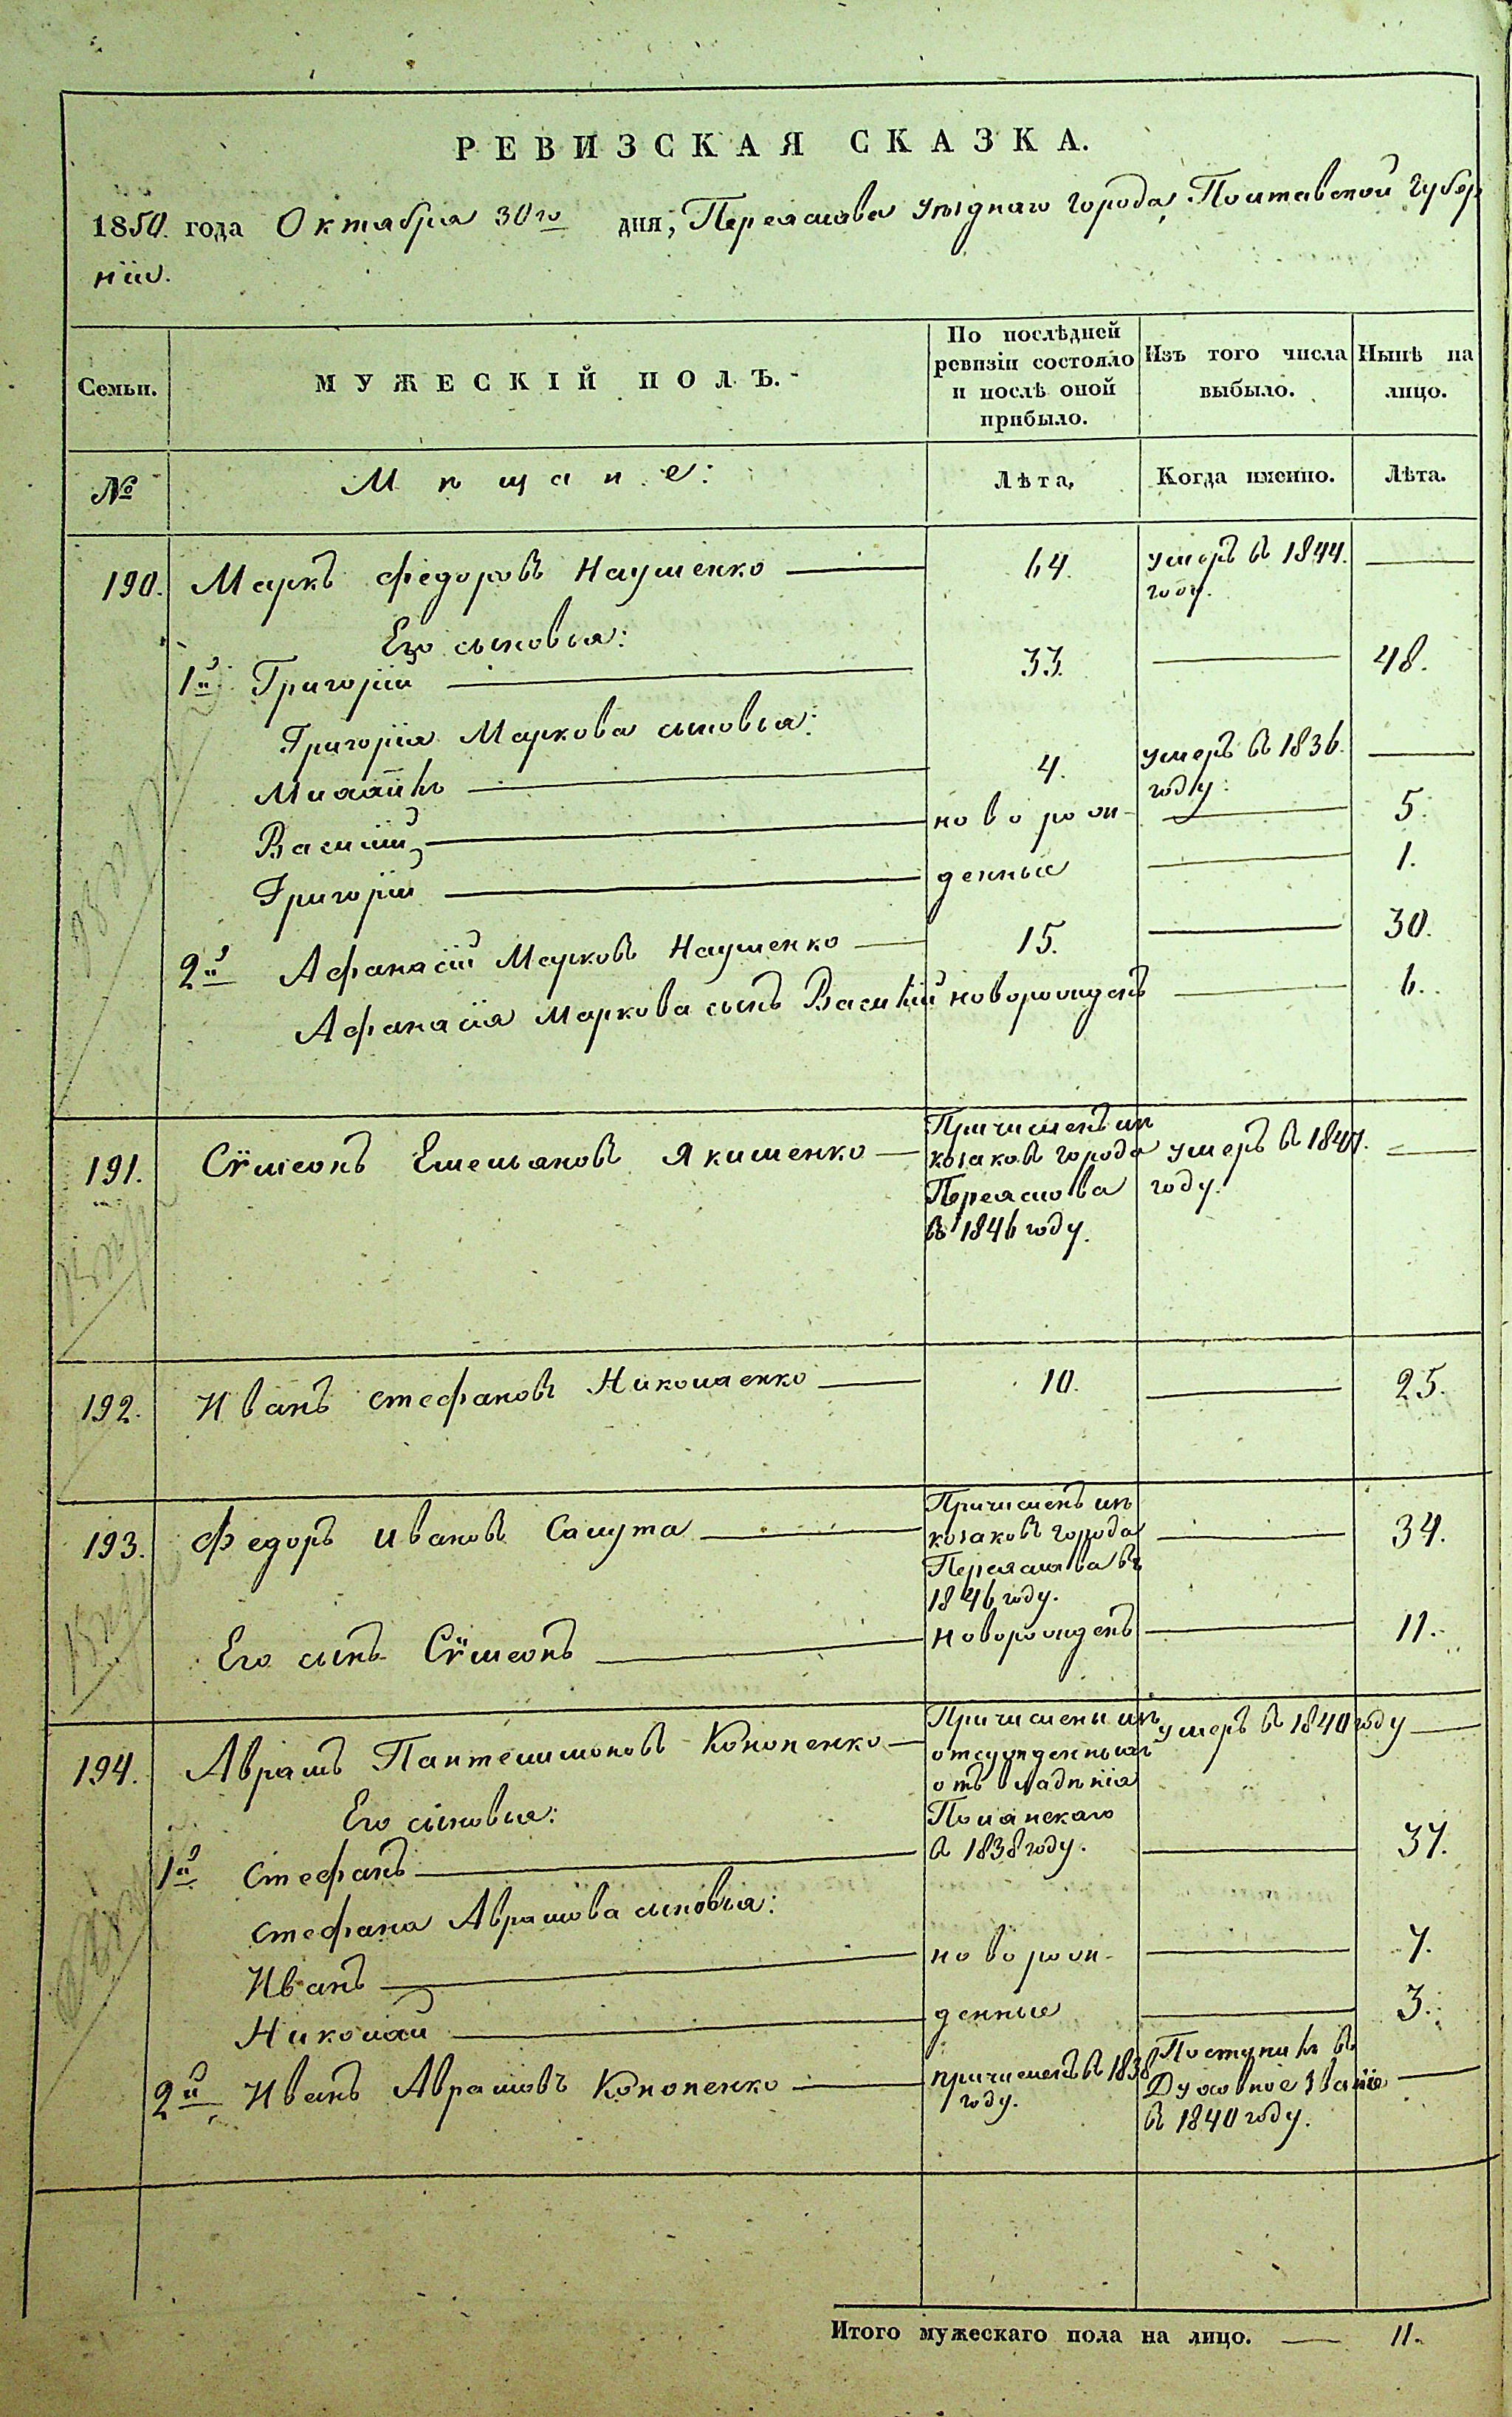 РЕВИЗСКАЯ СКАЗКА.
1850. года Октября 30го дня, Переяслава уѣзднаго города, Полтавской губер
нiи.
Семьи.
МУЖЕСКІЙ ПОЛЪ.
По послѣдней
ревизіи состояло
и послѣ оной
прибыло.
Изъ того числа
выбыло.
Нынѣ на
лицо.
№
Мѣщане:
Лѣта,
Когда именно.
Лѣта.
190. Маркъ Федоровъ Наушенко — 64. умеръ въ 1844. —
году.
Его сыновья:
1й Григорій — 33. — 48.
Григорія Маркова сыновья:
Михаилъ — 4. умеръ въ 1836. —
году.
Василій, — новорож- — 5.
Григорій — денные — 1.
2й Афанасій Марковъ Наушенко — 15. — 30.
Афанасія Маркова сынъ Василій новорожденъ — 6.
191. Сѵмеонъ Емельяновъ Якименко — Причисленъ изъ
козаковъ города умеръ въ 1847. —
Переяслова году.
въ 1846 году.
192. Иванъ Стефановъ Николаенко — 10. — 25.
193. Федоръ Ивановъ Салута — Причисленъ изъ
козаковъ города — 34.
Переяслава въ
1846 году.
Его сынъ Сѵмеонъ — новорожденъ — 11.
194. Аврамъ Пантелимоновъ Кононенко — Причислены изъ умеръ въ 1840 году —
отсужденныхъ
отъ владѣнія
Его сыновья: Полянскаго
1й Стефанъ — въ 1838 году. — 37.
Стефана Аврамова сыновья:
Иванъ — новорож- — 7.
Николай — денные — 3.
2й Иванъ Аврамовъ Кононенко — причисленъ въ 1838 Поступилъ въ
году. Духовное званіе —
въ 1840 году.
Итого мужескаго пола на лицо. — 11.